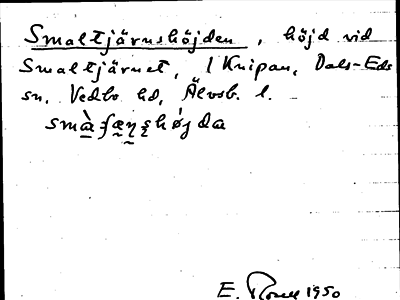 Smaltjärnshöjden, höjd vid
Smaltjärnet, 1 Knipan, Dals-Eds
sn, Vedbo hd, Älvsb. l.
E. 1950